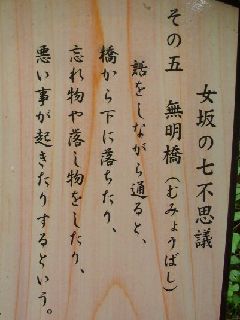 女坂の七不思議
その五 無明橋(むみょうばし)
話をしながら通ると、
橋から下に落ちたり、
忘れ物や落し物をしたり、
悪い事が起きたりするという。